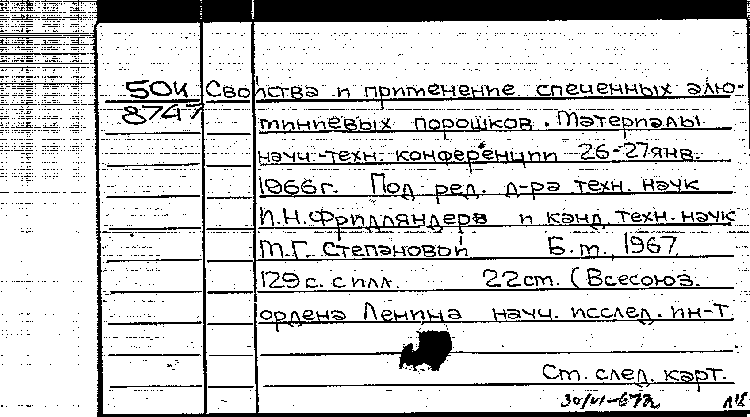 50И Свойства и применение спеченных алю-
8747 миниевых порошков. Материалы
науч.-техн. конференции 26-27 янв.
1966 г. Под ред. д-ра техн. наук
И.Н. Фридляндера и канд. техн. наук
М.Г. Степановой Б.м., 1967
129 с. с илл. 22 см. (Всесоюз.
ордена Ленина науч. исслед. ин-т
См. след. карт.